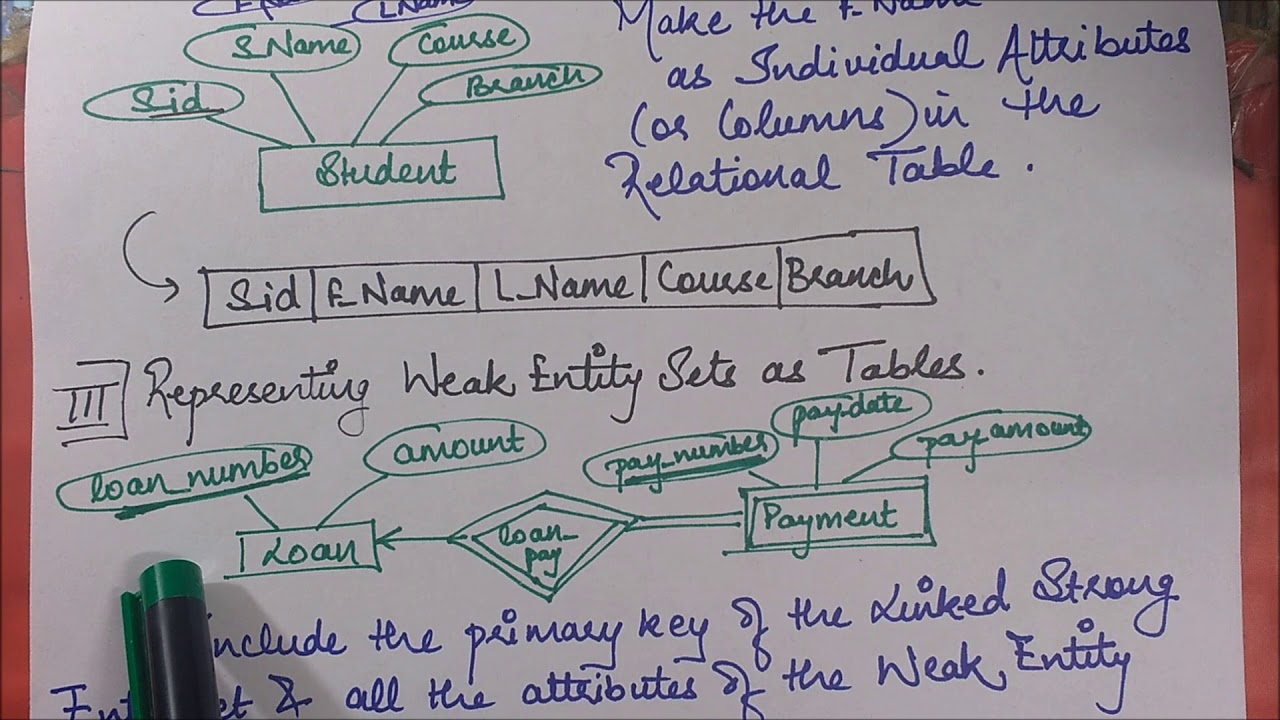 L_Name
Make the F_Name
S_Name Course
as Individual Attributes
Sid Branch
(or Columns) in the
Student
Relational Table.
Sid F_Name L_Name Course Branch
III Representing Weak Entity Sets as Tables.
loan_number amount pay_number pay_date pay_amount
Loan loan_pay Payment
include the primary key of the Linked Strong
& all the attributes of the Weak Entity